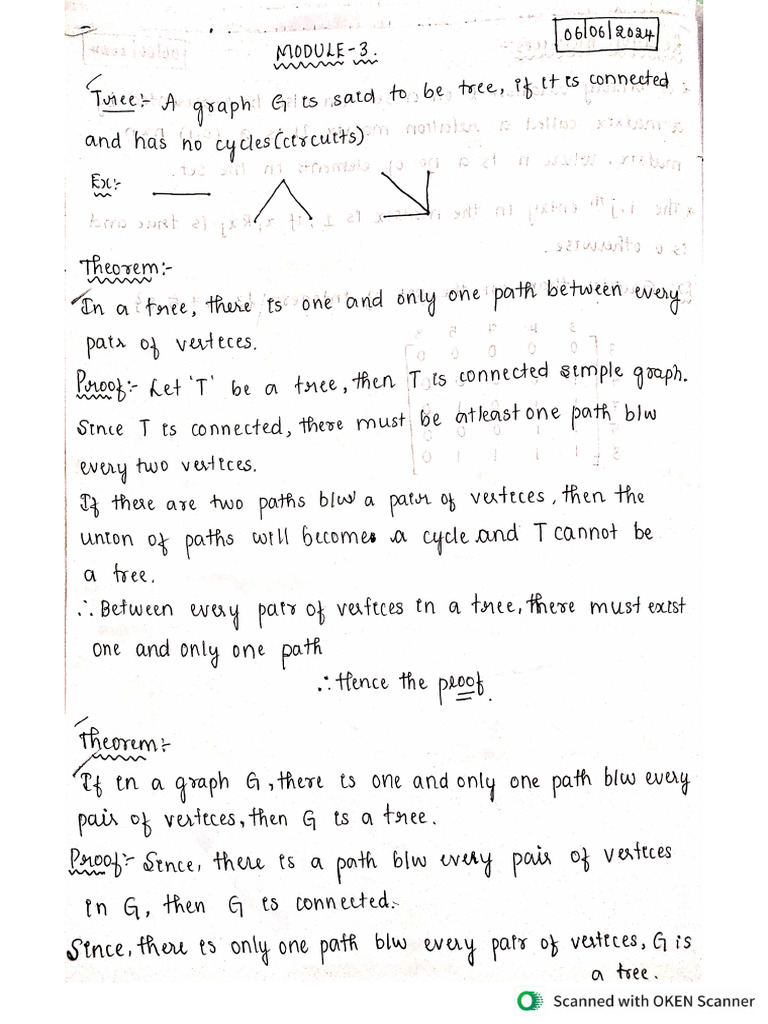 06/06/2024
MODULE-3.
Tree:- A graph G is said to be tree, if it is connected
and has no cycles(circuits)
Ex:-
Theorem:-
In a tree, there is one and only one path between every
pair of vertices.
Proof:- Let 'T' be a tree, then T is connected simple graph.
Since T is connected, there must be atleast one path b/w
every two vertices.
If there are two paths b/w a pair of vertices, then the
union of paths will becomes a cycle and T cannot be
a tree.
∴ Between every pair of vertices in a tree, there must exist
one and only one path
∴ Hence the proof.
Theorem:-
If in a graph G, there is one and only one path b/w every
pair of vertices, then G is a tree.
Proof:- Since, there is a path b/w every pair of vertices
in G, then G is connected.
Since, there is only one path b/w every pair of vertices, G is
a tree.
Scanned with OKEN Scanner